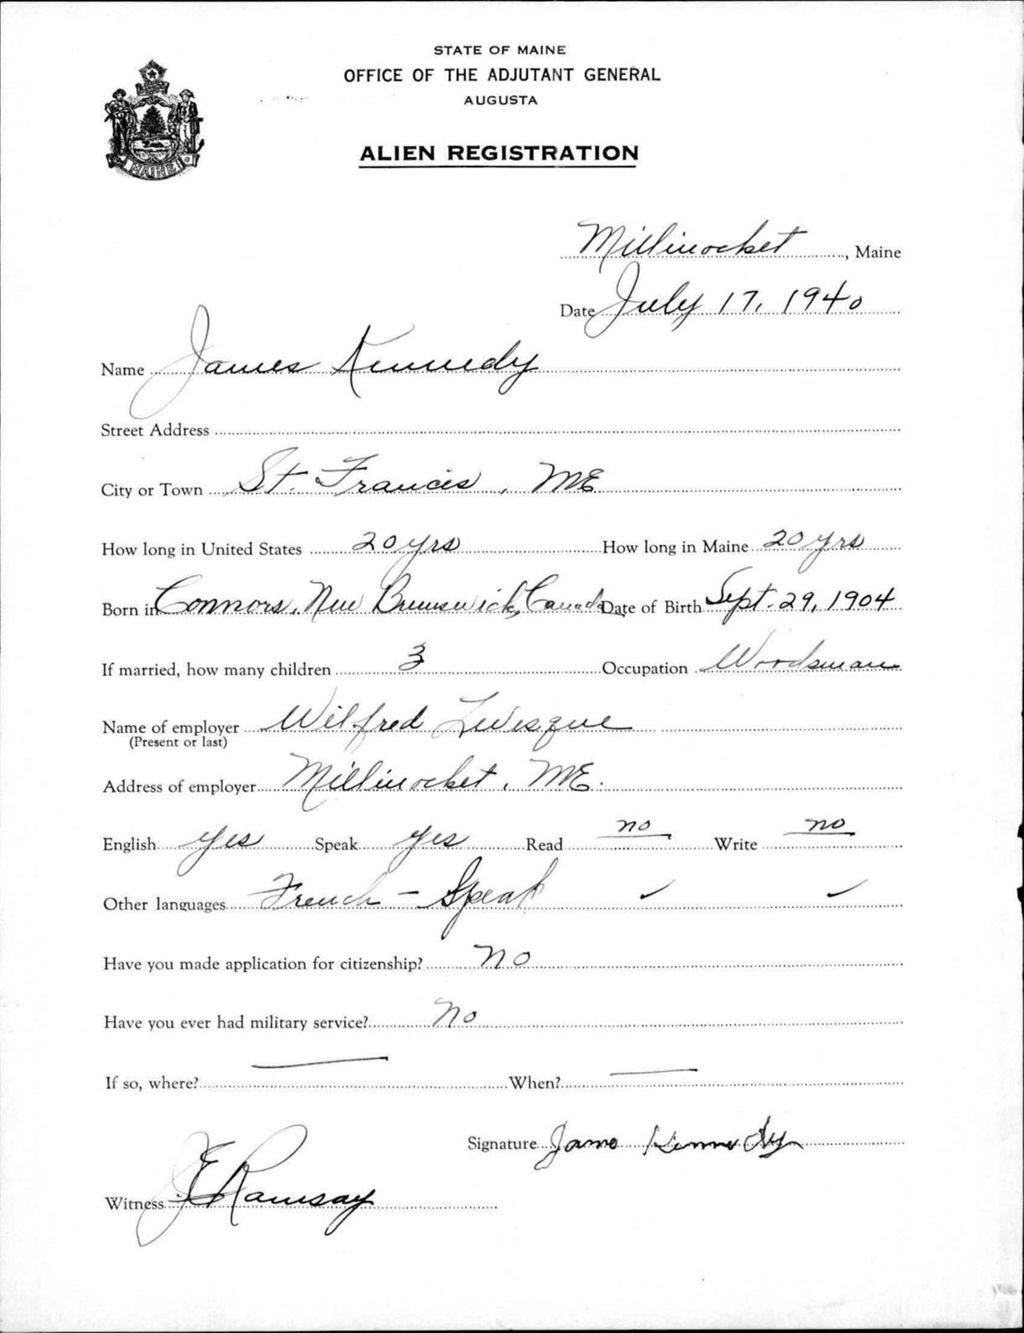 STATE OF MAINE
OFFICE OF THE ADJUTANT GENERAL
AUGUSTA
ALIEN REGISTRATION
MAINE
Millinocket, Maine
Date July 17, 1940
Name James Kennedy
Street Address
City or Town St. Francis, ME
How long in United States 20 yrs How long in Maine 20 yrs
Born in Connors, New Brunswick, Canada Date of Birth Sept. 29, 1904
If married, how many children 3 Occupation Woodsman
Name of employer Wilfred Levesque
(Present or last)
Address of employer Millinocket, ME.
English yes Speak yes Read no Write no
Other languages French - Speak ✓ ✓
Have you made application for citizenship? no
Have you ever had military service? no
If so, where? — When? —
Signature Jame Kennedy
Witness J E Ramsay